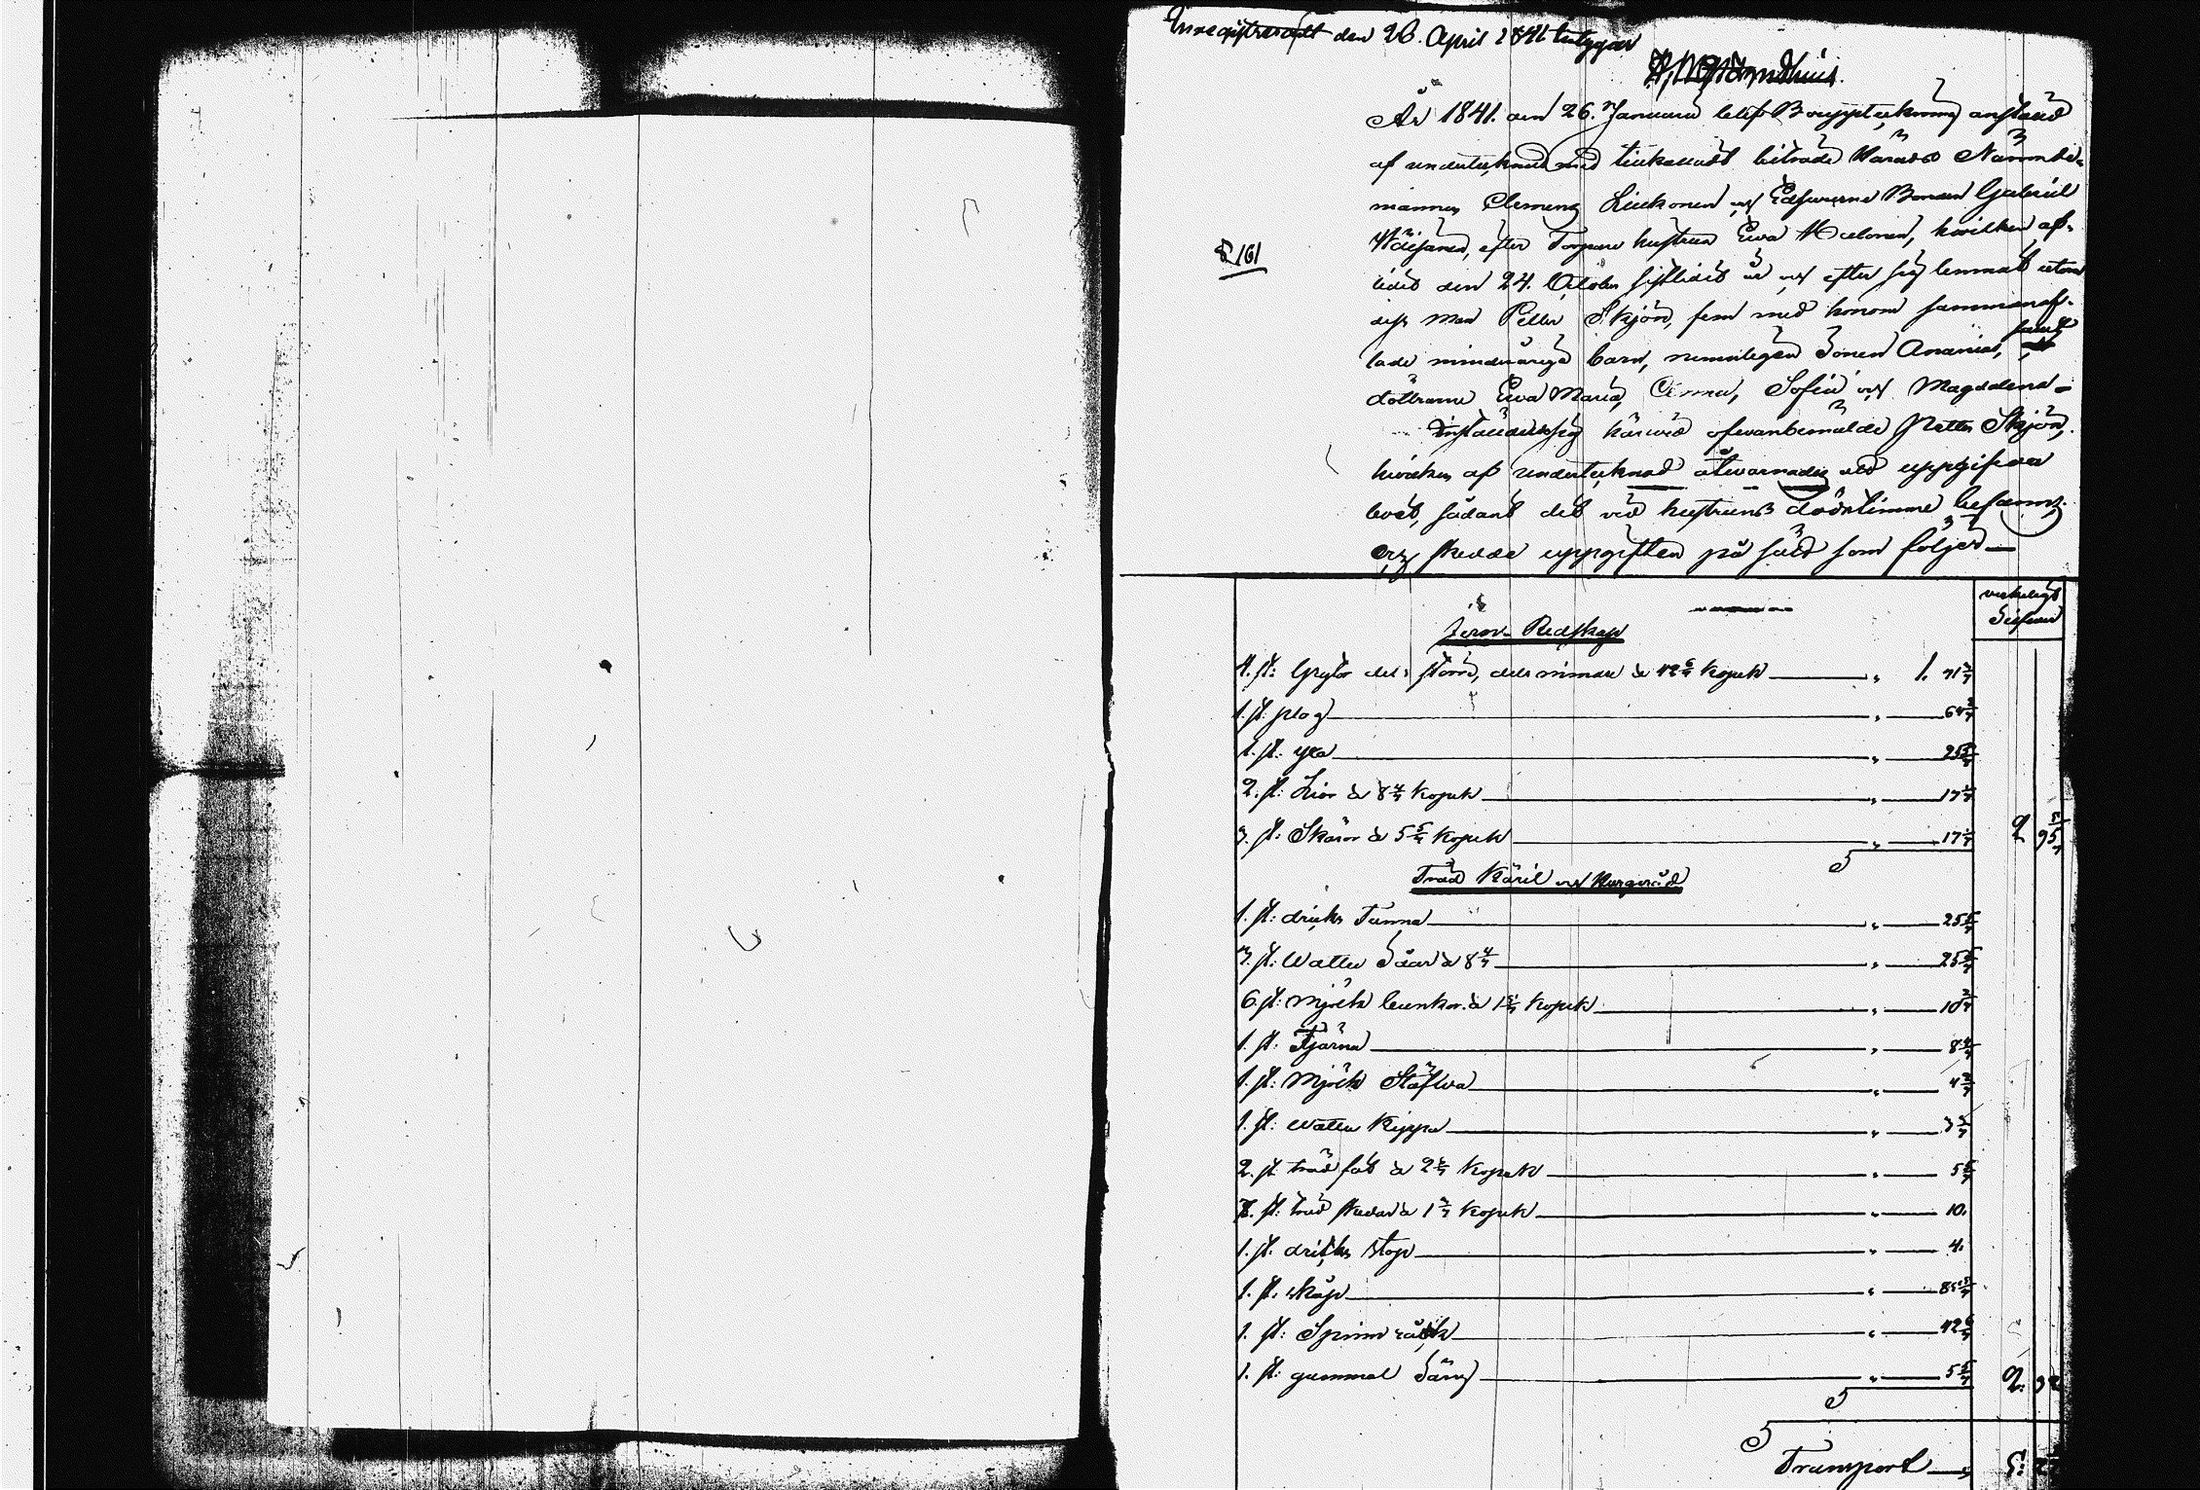 Inregistreradt den 26. April 1841 betygar
År 1841. den 26. Januarii blef Bouppteckning anstäld
af undertecknad med tilkallade biträde Härads Nämnde-
mannen Clemens Liukonen och Edsvurne Bonden Gabriel
efter Torpare hustrun Ewa hvilken af-
ledit den 24. October sistledit år och efter sig lemnat utom
dess man Petter Skjön, fem med honom samman af-
lade minderåriga barn, nemligen Sonen Ananias, samt
döttrarne Ewa Maria, Anna, Sofia och Magdalena
§ 161
Inställde sig härvid ofvanbemälde Petter Skjön,
hvilken af undertecknad åtvarnades att uppgifva
boet, sådant det vid hustruns dödstimme befanns.
och skedde uppgiften på sätt som följer —
Silfver
Jern Redskap
4. st: Grytor dels större, dels mindre à 42 6/7 Kopek — " 1. 71 3/7
1. st. plog — " — 64 2/7
1. st: yxa — " — 25 5/7
2. st: Liar à 8 4/7 Kopek — " — 17 1/7
3. st: Skäror à 5 5/7 Kopek — " — 17 1/7 2 95 5/7
Träd Käril och Husgeråd
1. st: dricks Tunna — " — 25 5/7
3. st: Watten Såar à 8 4/7 — " — 25 5/7
6. st: Mjölk bunkar à 1 5/7 Kopek — " — 10 2/7
1. st: Tjärna — " — 8 4/7
1. st: Mjölk Stäfwa — " — 4 2/7
1. st: Watten Kippa — "
2. st träd fat à 2 6/7 Kopek — " — 5 5/7
7. st: träd skedar à 1 3/7 Kopek — " — 10.
1. st. dricks stop — " — 4.
1. st. skåp — " — 85 5/7
1. st: Spinnråck — " — 42 6/7
1. st: gammal Säng — " — 5 5/7 2.
Transport — " 5: